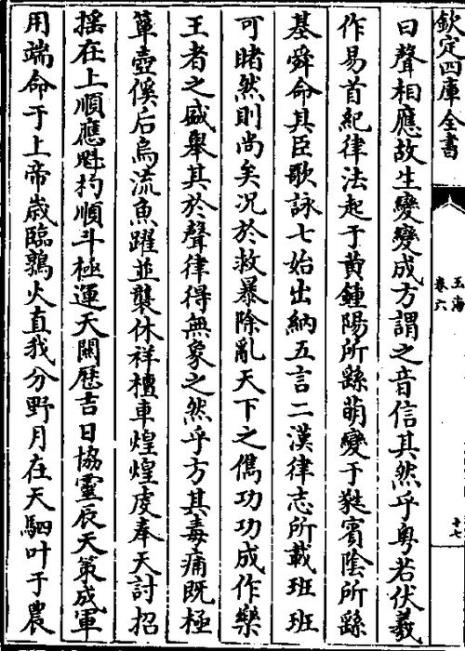 欽定四庫全書
玉海
卷六
十七
曰聲相應故生變變成方謂之音信其然乎粤若伏羲
作易首紀律法起于黄鍾陽所繇萌變于蕤賓陰所繇
基舜命其臣歌詠七始出納五言二漢律志所載班班
可睹然則尚矣况於救暴除亂天下之儁功功成作樂
王者之盛舉其於聲律得無象之然乎方其毒痡既極
簞壺傒后烏流魚躍並襲休祥檀車煌煌虔奉天討招
摇在上順應魁杓順斗極運天關歴吉日協靈辰天策成軍
用端命于上帝歳臨鶉火直我分野月在天駟叶于農